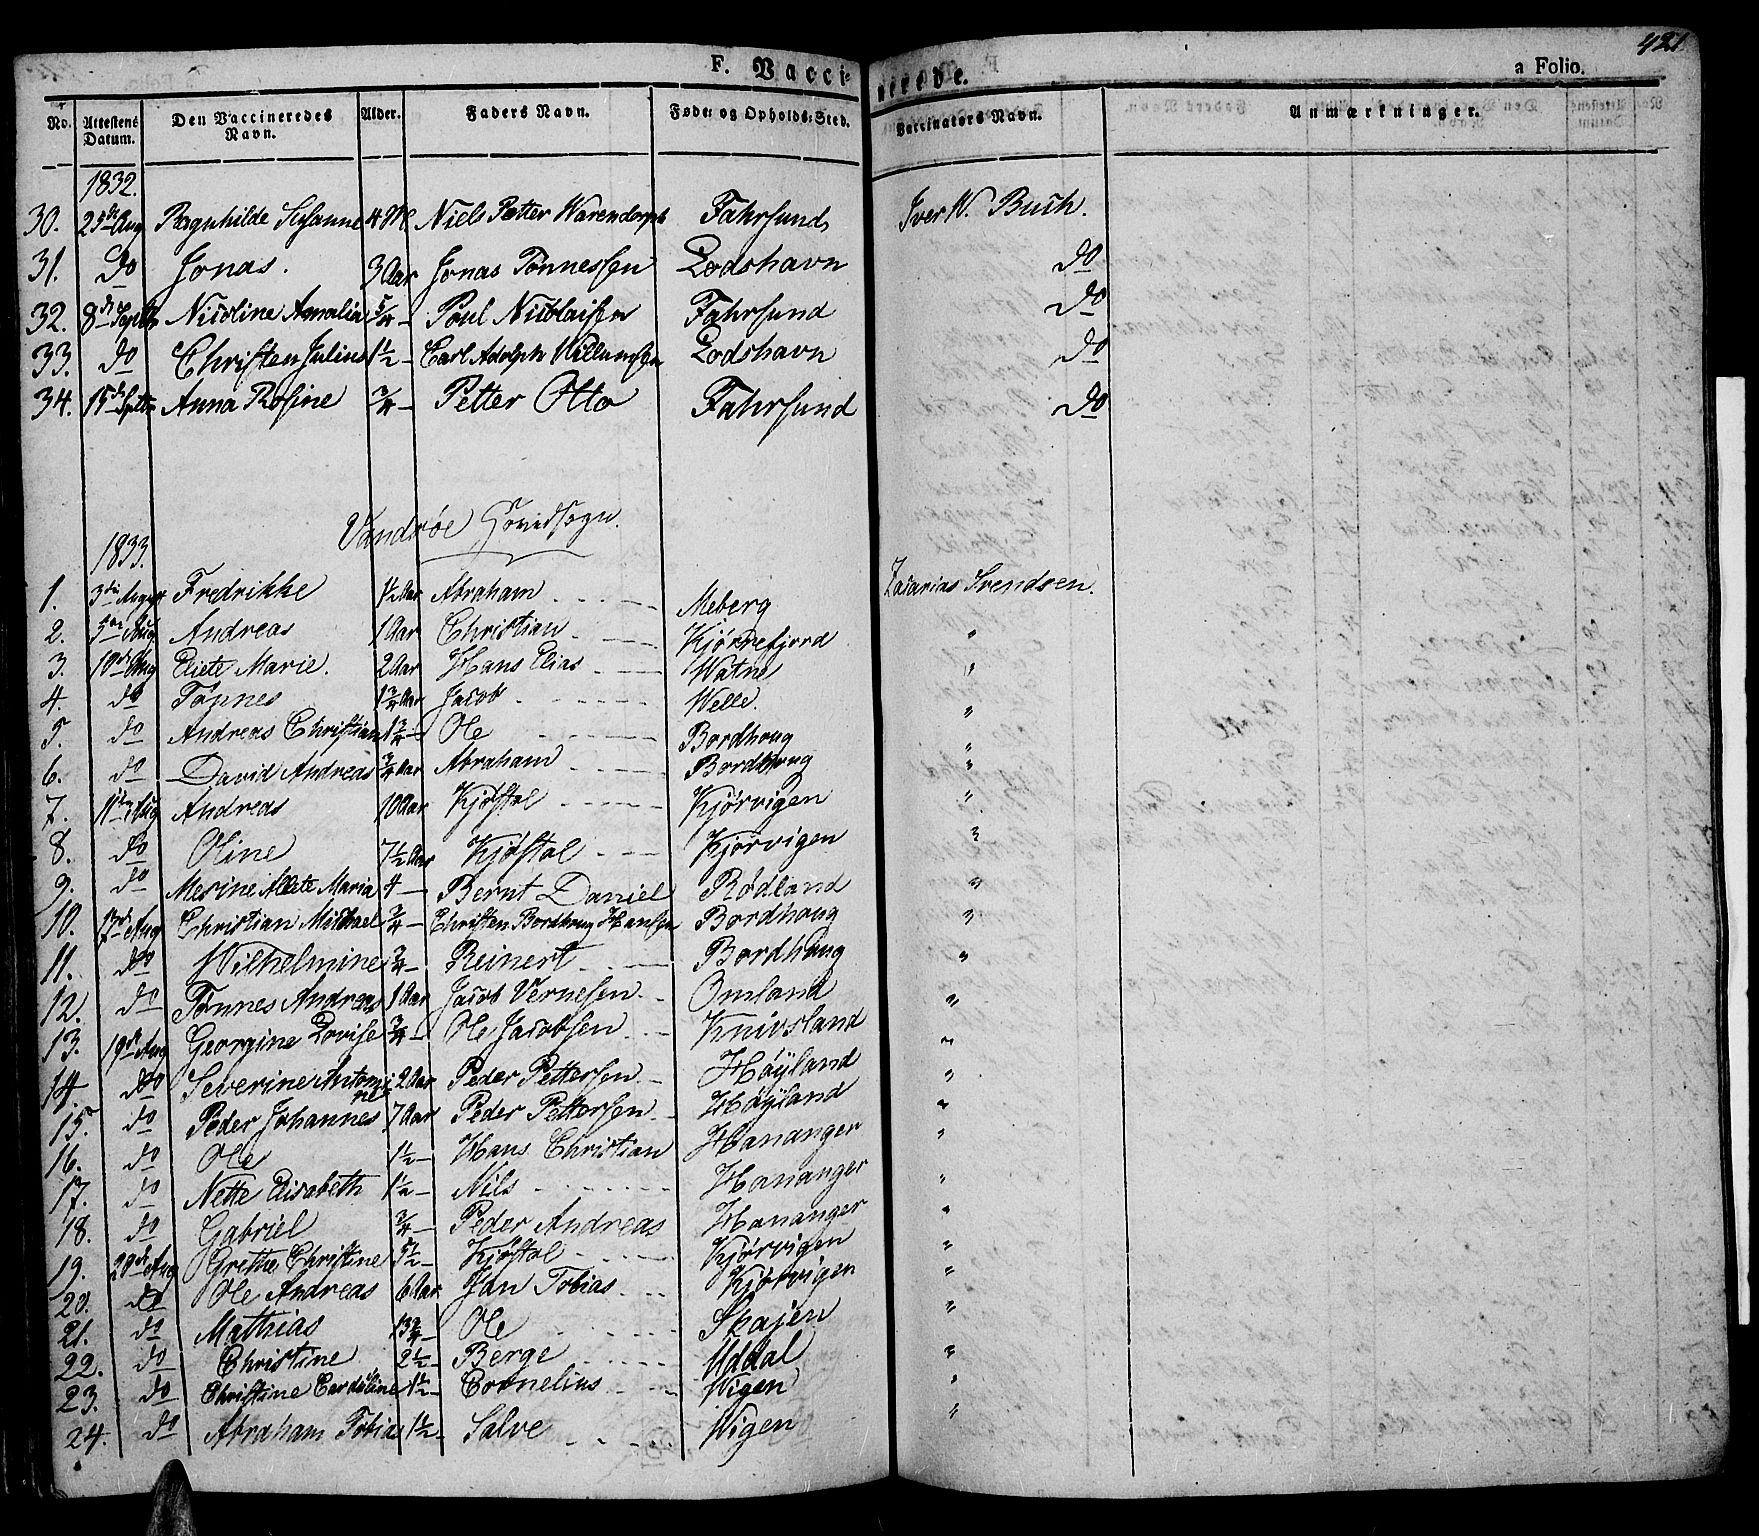 421
F. Vaccinerede.
a Folio.
No. Attestens Datum. Den Vaccineredes Navn. Alder. Faders Navn. Føde- og Opholds-Sted. Vaccinators Navn. Anmærkninger.
1832.
30. 25de Aug Ragnhilde Susanne 4 Niels Petter Warendorph Fahrsund Iver W. Buch.
31. do Jonas. 3 Aar Jonas Tønnessen Lodshavn do
32. 8de Septbr Nicoline Amalia 5/4 - Poul Nicolaisen Fahrsund do
33. do Christen Julius 1½ - Carl Adolph Willumsen Lodshavn do
34. 15de Septbr Anna Rosine 3/4 - Petter Otto Fahrsund do
Vandsøe Hovedsogn.
1833.
1. 3die August Fredrikke 1½ Aar Abraham Meberg Zacarias Svendsen.
2. Aug Andreas 1 Aar Christian Kjørrefjord "
3. 10de Aug Eliete Marie. 2 Aar Hans Elias Watne "
4. do Tønnes 1¾ Aar Jacob Welle. "
5. do Andreas Christian 1¾ - Ole Bordhoug "
6. do David Andreas ¾ Aar Abraham Bordhoug "
7. 11te Aug Andreas 10 Aar Kjøstol Kjørvigen "
8. do Oline 7½ Aar Kjøstol Kjørvigen "
9. do Mesine Alete Maria 4 - Bernt Daniel Rødland "
10. 13de Aug Christian Michael ¾ - Christen Bordhoug Hansen Bordhoug "
11. do Wilhelmine ¾ - Reinert Bordhoug "
12. do Tønnes Andreas 1 Aar Jacob Vernesen Omland "
13. 19de Aug Georgine Lovise ¾ - Ole Jacobsen Knivsland "
14. do Severine Antonine 2 Aar Peder Pettersen Høyland "
15. do Peder Johannes 7 Aar Peder Pettersen Høyland "
16. do Ole 1½ - Hans Christian Hananger "
17. do Nette Elisabeth 1½ - Nils Hananger "
18. do Gabriel ¾ - Peder Andreas Hananger "
19. 29de Aug Grethe Christine 5½ - Kjøstol Kjørvigen "
20. do Ole Andreas 6 Aar Jan Tobias Kjørvigen "
21. do Mathias 13¾ - Ole Skajen "
22. do Christine 2½ - Berge Uddal "
23. do Christine Caroline 1½ - Cornelius Wigen "
24. do Abraham Tobias 1½ - Salve Wigen "